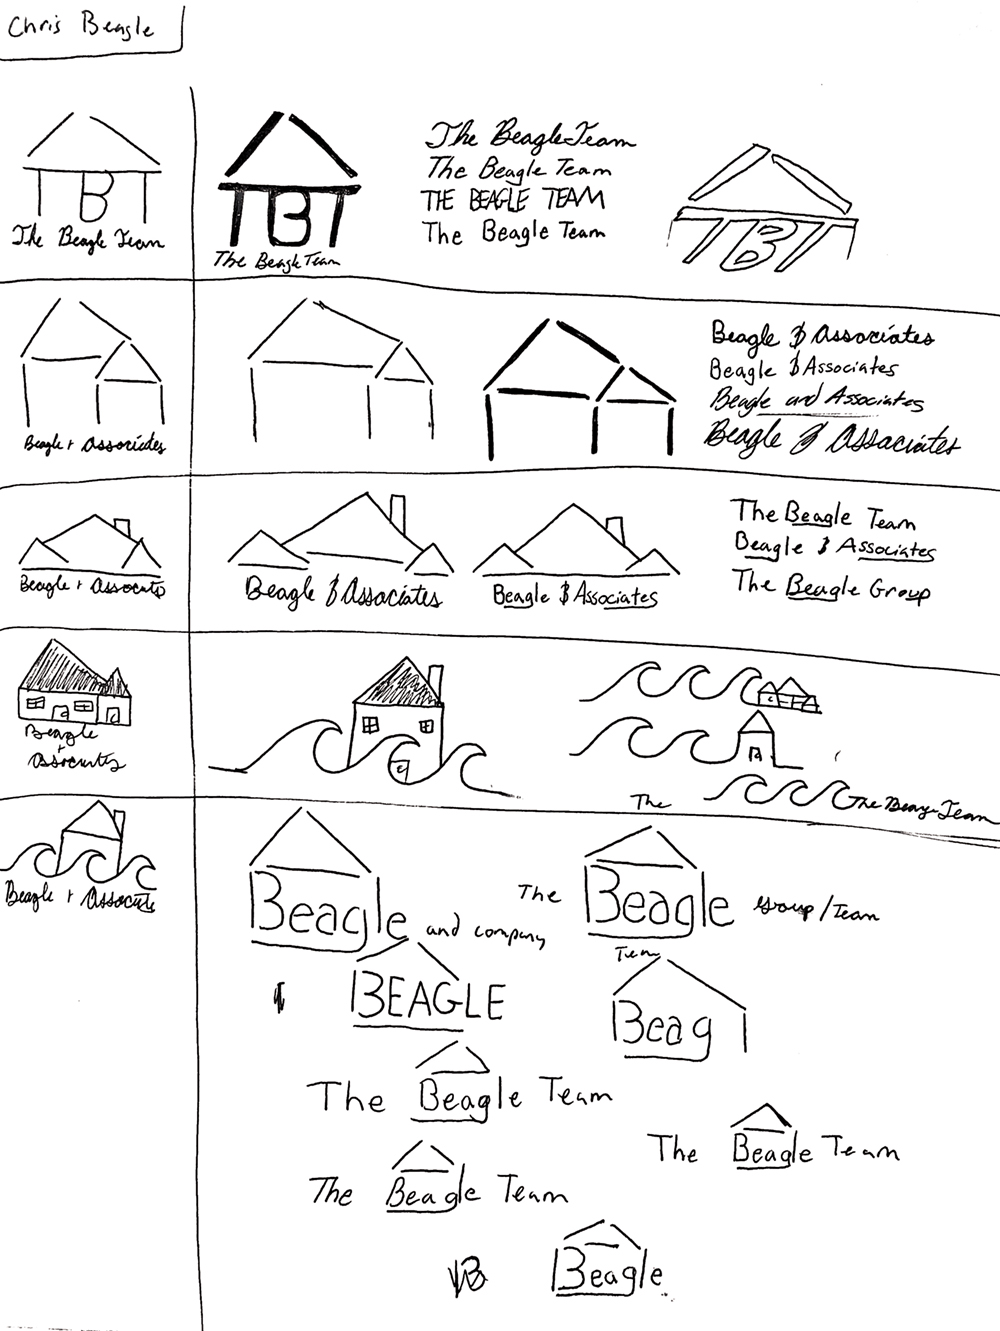 Chris Beagle
B
The Beagle Team
TBT
The Beagle Team
The Beagle Team
The Beagle Team
THE BEAGLE TEAM
The Beagle Team
TBT
Beagle + Associates
Beagle & Associates
Beagle & Associates
Beagle and Associates
Beagle & Assaciates
Beagle + Assocate
Beagle & Associates
Beagle & Associates
The Beagle Team
Beagle & Associates
The Beagle Group
Beagle
+
The
The Beagle Team
Beagle + Associate
Beagle and company
The Beagle Group/Team
Team
BEAGLE
Beag
The Beagle Team
The Beagle Team
The Beagle Team
B
Beagle